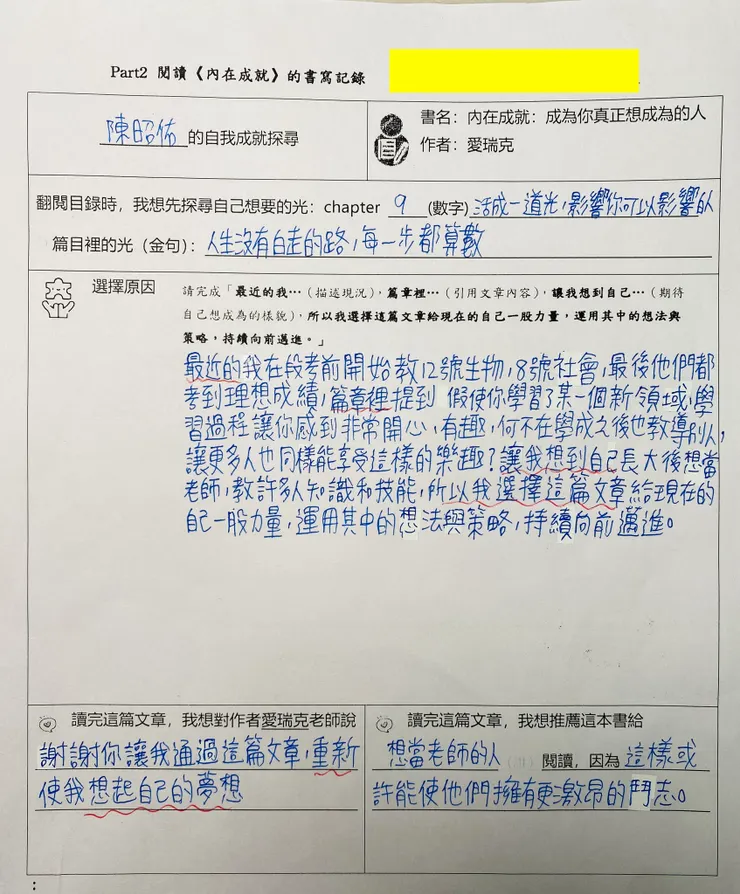 Part2 閱讀《內在成就》的書寫記錄
陳昭佑的自我成就探尋
書名：內在成就：成為你真正想成為的人
作者：愛瑞克
翻閱目錄時，我想先探尋自己想要的光：chapter 9 (數字) 活成一道光，影響你可以影響的人
篇目裡的光（金句）：人生沒有白走的路，每一步都算數
選擇原因
請完成「最近的我…（描述現況），篇章裡…（引用文章內容），讓我想到自己…（期待
自己想成為的樣貌），所以我選擇這篇文章給現在的自己一股力量，運用其中的想法與
策略，持續向前邁進。」
最近的我在段考前開始教12號生物，8號社會，最後他們都
考到理想成績，篇章裡提到 假使你學習了某一個新領域，學
習過程讓你感到非常開心、有趣，何不在學成之後也教導別人，
讓更多人也同樣能享受這樣的樂趣？讓我想到自己長大後想當
老師，教許多人知識和技能，所以我選擇這篇文章給現在的
自己一股力量，運用其中的想法與策略，持續向前邁進。
讀完這篇文章，我想對作者愛瑞克老師說
謝謝你讓我通過這篇文章，重新
使我想起自己的夢想
讀完這篇文章，我想推薦這本書給
想當老師的人 閱讀，因為 這樣或
許能使他們擁有更激昂的鬥志。